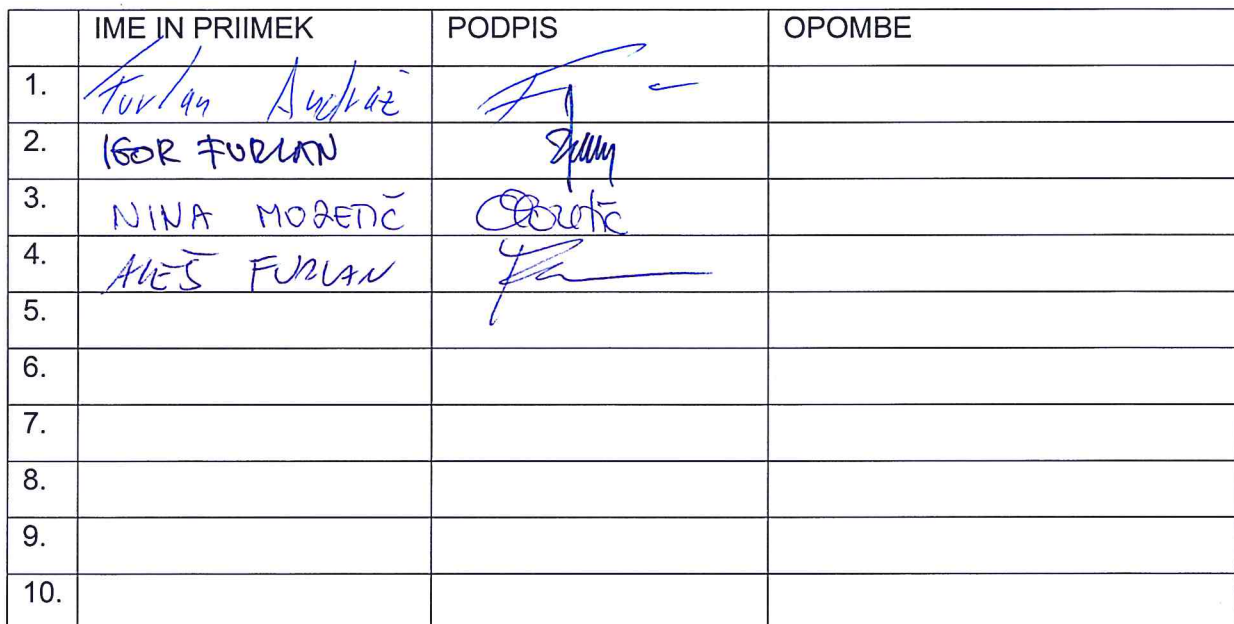 IME IN PRIIMEK PODPIS OPOMBE
1. Furlan Andraž
2. IGOR FURLAN
3. NINA MOZETIČ Mozetič
4. ALEŠ FURLAN
5.
6.
7.
8.
9.
10.